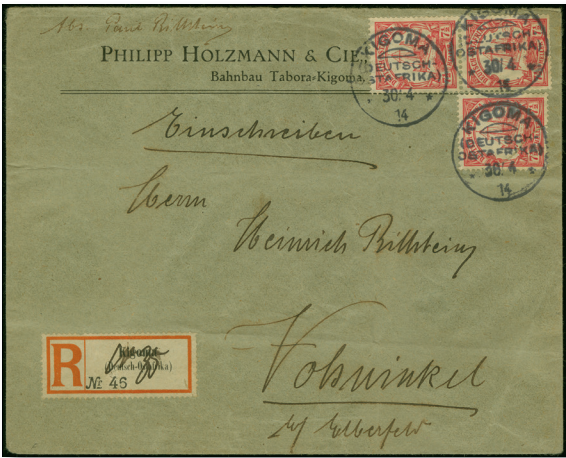 Abs. Paul Billstein
PHILIPP HOLZMANN & CIE
Bahnbau Tabora-Kigoma.
KIGOMA
(DEUTSCH-
OSTAFRIKA)
30. 4.
14
KIGOMA
(DEUTSCH-
OSTAFRIKA)
30. 4
14
KIGOMA
(DEUTSCH-
OSTAFRIKA)
30. 4
14
7½
7½
7½
Einschreiben
Herrn
Heinrich Billstein
Vohwinkel
b/ Elberfeld
R
Kigoma
(Deutsch-Ostafrika)
№ 46